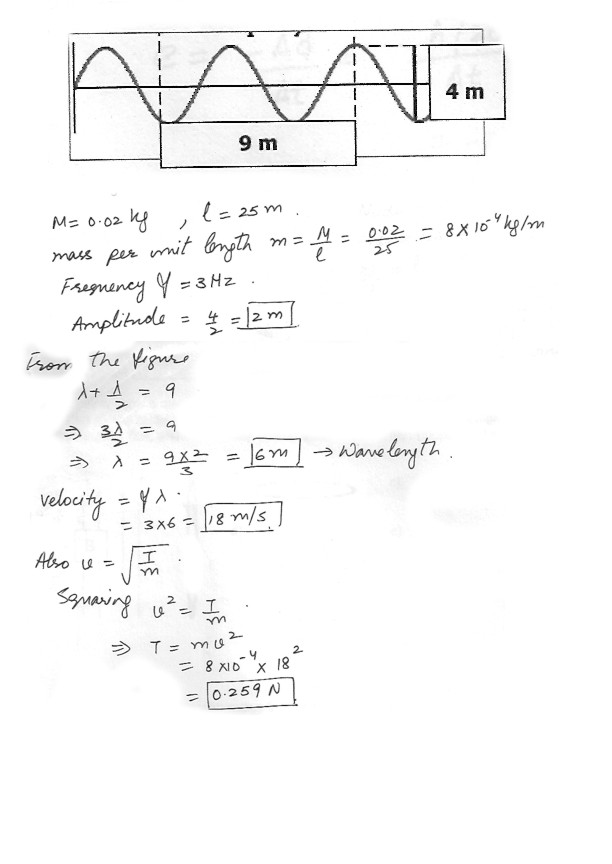 4 m
9 m
M = 0.02 kg , l = 25 m .
mass per unit length m = M/l = 0.02/25 = 8 × 10⁻⁴ kg/m
Frequency f = 3 Hz .
Amplitude = 4/2 = 2 m
From the figure
λ + λ/2 = 9
⇒ 3λ/2 = 9
⇒ λ = 9×2/3 = 6 m → Wavelength .
Velocity = f λ .
= 3×6 = 18 m/s
Also v = √(T/m) .
Squaring v² = T/m .
⇒ T = m v²
= 8 × 10⁻⁴ × 18²
= 0.259 N